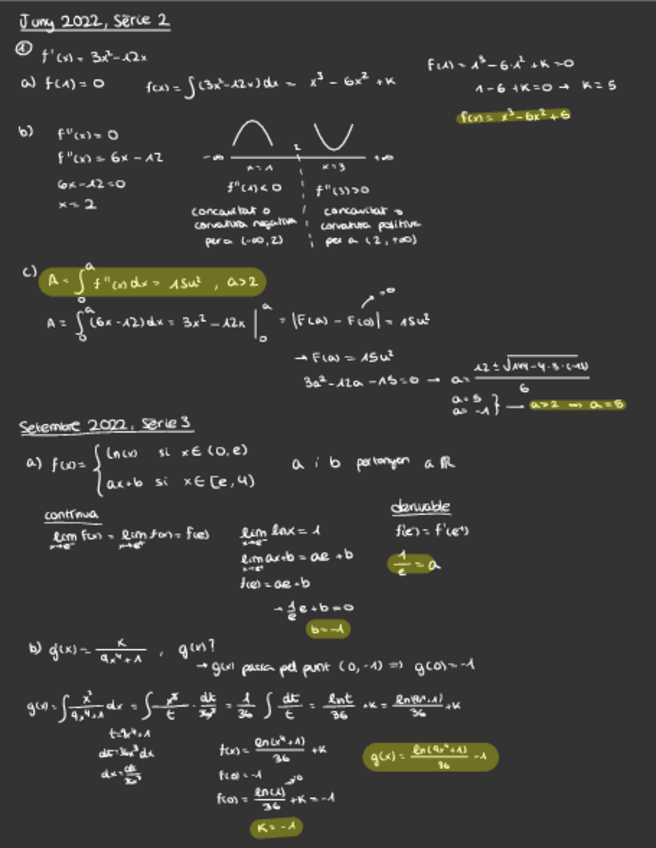 Juny 2022, Sèrie 2
① f'(x) = 3x²-12x
a) f(1) = 0 f(x) = ∫(3x²-12x)dx = x³ - 6x² + K
F(1) = 1³ - 6·1² + K = 0
1 - 6 + K = 0 → K = 5
f(x) = x³ - 6x² + 5
b) f''(x) = 0
f''(x) = 6x - 12
6x - 12 = 0
x = 2
-∞ 2 +∞
x=1 x=3
f''(1) < 0 f''(3) > 0
concavitat o concavitat o
curvatura negativa curvatura positiva
per a (-∞, 2) per a (2, +∞)
c) A = ∫₀ᵃ f''(x) dx = 15u², a>2
A = ∫₀ᵃ (6x-12)dx = 3x² - 12x |₀ᵃ = |F(a) - F(0)| = 15u²
→ F(a) = 15u²
3a² - 12a - 15 = 0 → a = (12 ± √(144 - 4·3·(-15))) / 6
a = 5
a = -1 } → a>2 ⟹ a = 5
Setembre 2022, Sèrie 3
a) f(x) = { ln(x) si x ∈ (0, e)
ax+b si x ∈ [e, 4)
a i b pertanyen a ℝ
contínua
lim f(x) = lim f(x) = f(e)
lim lnx = 1
lim ax+b = ae + b
f(e) = ae + b
b = -1
derivable
f'(e⁻) = f'(e⁺)
1/e = a
b) g'(x) = , g(x)?
→ g(x) passa pel punt (0, -1) => g(0) = -1
g(x) = ∫ x³/(9x⁴+1) dx = ∫ x³/t · dt/36x³ = 1/36 ∫ dt/t = lnt/36 + K = ln(9x⁴+1)/36 + K
t = 9x⁴+1
dt = 36x³ dx
dx = dt/36x³
f(x) = ln(x⁴+1)/36 + K
f(0) = -1
f(0) = ln(1)/36 + K = -1
K = -1
g(x) = ln(9x⁴+1)/36 - 1